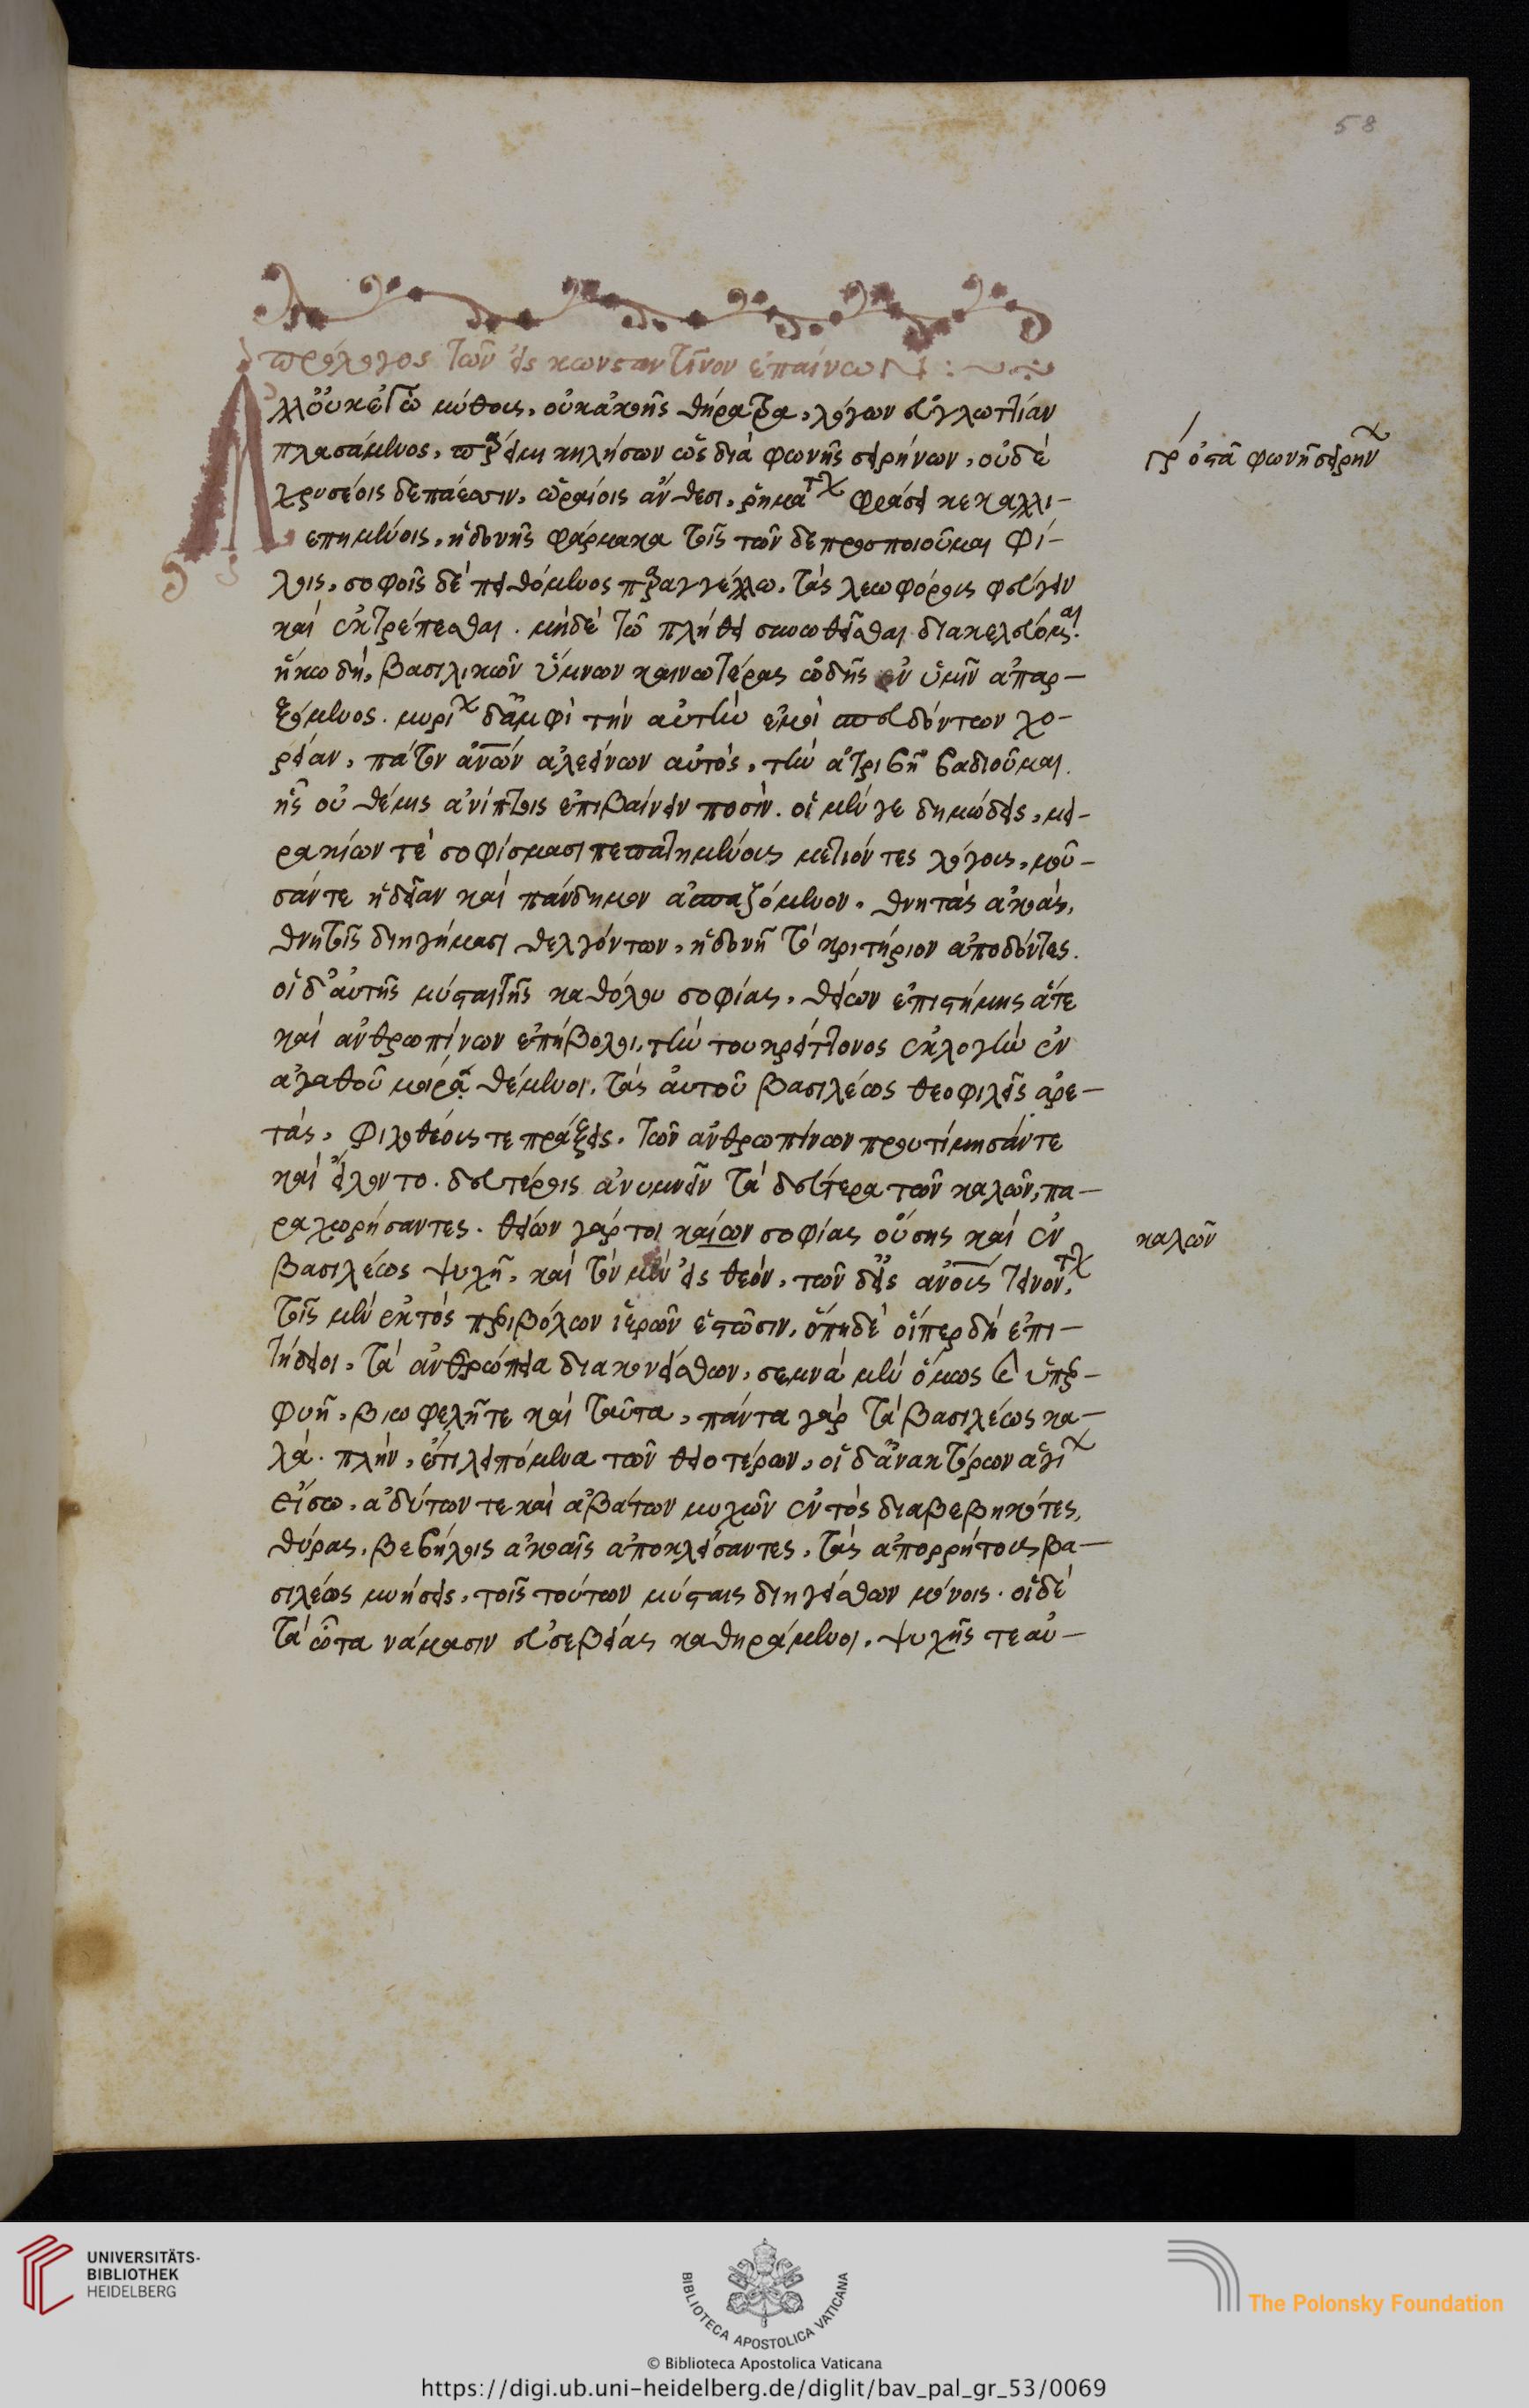 58
πρόλογος τῶν εἰς κωνσταντῖνον ἐπαίνων
Ἀλλ' οὐκ ἐγὼ μύθοις, οὐκ ἀκοῆς θήρατρα, λόγων εὐγλωττίαν
πλασάμενος, πάρειμι κηλήσων ὡς διὰ φωνῆς σειρήνων, οὐδὲ
γρ ὅσα φωνῆ σειρήν
χρυσέοις δεπάεσσιν, ὡραίοις ἄνθεσι, ῥήματος φράσει κεκαλλι-
επημένοις, ἡδονῆς φάρμακα τοῖς τῶνδε προσποιοῦμαι φί-
λοις, σοφοῖς δὲ πειθόμενος παραγγέλλω, τὰς λεωφόρους φεύγειν
καὶ ἐκτρέπεσθαι. μηδὲ τῷ πλήθει συνωθεῖσθαι διακελευόμεναι.
ἥκω δὴ, βασιλικῶν ὕμνων καινωτέρας ᾠδῆς ἐν ὑμῖν ἀπαρ-
ξόμενος. μυρίων δ' ἀμφὶ τὴν αὐτὴν ἐμοὶ σπευδόντων χο-
ρείαν, πάτον ἀνων ἀλεείνων αὐτὸς, τὴν ἀτριβῆ βαδιοῦμαι.
ἧς οὐ θέμις ἀνίπτοις ἐπιβαίνειν ποσίν. οἱ μέν γε δημώδεις, μει-
ρακίων τε σοφίσμασι πεπατημένους μετιόντες λόγους, μοῦ-
σάν τε ἡδεῖαν καὶ πάνδημον ἀσπαζόμενον, θνητὰς ἀκοὰς,
θνητοῖς διηγήμασι θελγόντων, ἡδονῇ τὸ κριτήριον ἀποδόντες.
οἱ δ' αὐτῆς μύσται τῆς καθόλου σοφίας, θείων ἐπιστήμης ἅτε
καὶ ἀνθρωπίνων ἐπήβολοι, τὴν του κρείττονος ἐκλογὴν ἐν
ἀγαθοῦ μοίρᾳ θέμενοι, τὰς αὐτοῦ βασιλέως θεοφιλεῖς ἀρε-
τὰς, φιλοθέους τε πράξεις, τῶν ἀνθρωπίνων προυτίμησάν τε
καὶ εἵλοντο. δευτέροις ἀνυμνεῖν τὰ δεύτερα τῶν καλῶν, πα-
ραχωρήσαντες. θείων γάρ τοι καίων σοφίας οὔσης καὶ ἐν
καλῶν
βασιλέως ψυχῇ, καὶ τῶν μὲν εἰς θεὸν, τῶν δ' εἰς ἀνοις τεινόντων,
τοῖς μὲν ἐκτὸς περιβόλων ἱερῶν ἑστῶσιν, ὅπη δὲ οἵπερ δὴ ἐπι-
τήδειοι, τὰ ἀνθρώπεια διακονείσθων, σεμνὰ μὲν ὅμως καὶ ὑπερ-
φυῆ, βιωφελῆ τε καὶ ταῦτα, πάντα γὰρ τὰ βασιλέως κα-
λὰ. πλὴν, ἔτι λειπόμενα τῶν θειοτέρων, οἱ δ' ἀνακτόρων ἁγίων
εἴσω, ἀδύτων τε καὶ ἀβάτων μυχῶν ἐντὸς διαβεβηκότες,
θύρας, βεβήλοις ἀκοαῖς ἀποκλείσαντες, τὰς ἀπορρήτους βα-
σιλέως μυήσεις, τοῖς τούτων μύσταις διηγείσθων μόνοις. οἱ δὲ
τὰ ὦτα νάμασιν εὐσεβείας καθηράμενοι, ψυχῆς τε αὐ-
UNIVERSITÄTS-
BIBLIOTHEK
HEIDELBERG
BIBLIOTECA APOSTOLICA VATICANA
The Polonsky Foundation
© Biblioteca Apostolica Vaticana
https://digi.ub.uni-heidelberg.de/diglit/bav_pal_gr_53/0069